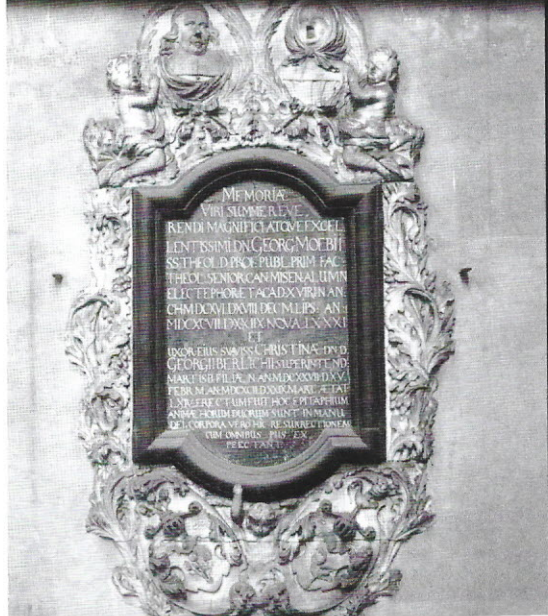 MEMORIÆ
VIRI SUMME REVE,
RENDI MAGNIFICI ATQVE EXCEL,
LENTISSIMI DN. GEORG MOEBII
SS. THEOL. D. PROF. PUBL. PRIM. FAC-
THEOL. SENIOR CAN. MISEN. ALUMN
ELECT EPHOR ET ACAD. X VIRI N. AN.
CHM DCXVI. D. XVIII DEC. M. LIPS. AN:
MDCXCVII. D. XXIIX NOVA. LXXXI
ET
UXOR. EIUS SVAVISS. CHRISTINÆ DN. D.
GEORGII SUPERINTEND
FILIÆ N. AN. M.DC.XXVII. D. XV.
FEBR. M. AN. MDCXCII. D. XXIX. MAR. ÆTAT
ERECTUM FUIT HOC EPITAPHIUM
ANIMÆ HORUM DUORUM SUNT IN MANU
DEI, CORPORA VERO HIC RESURRECTIONEM
CUM OMNIBUS PIIS EX
PECTANT